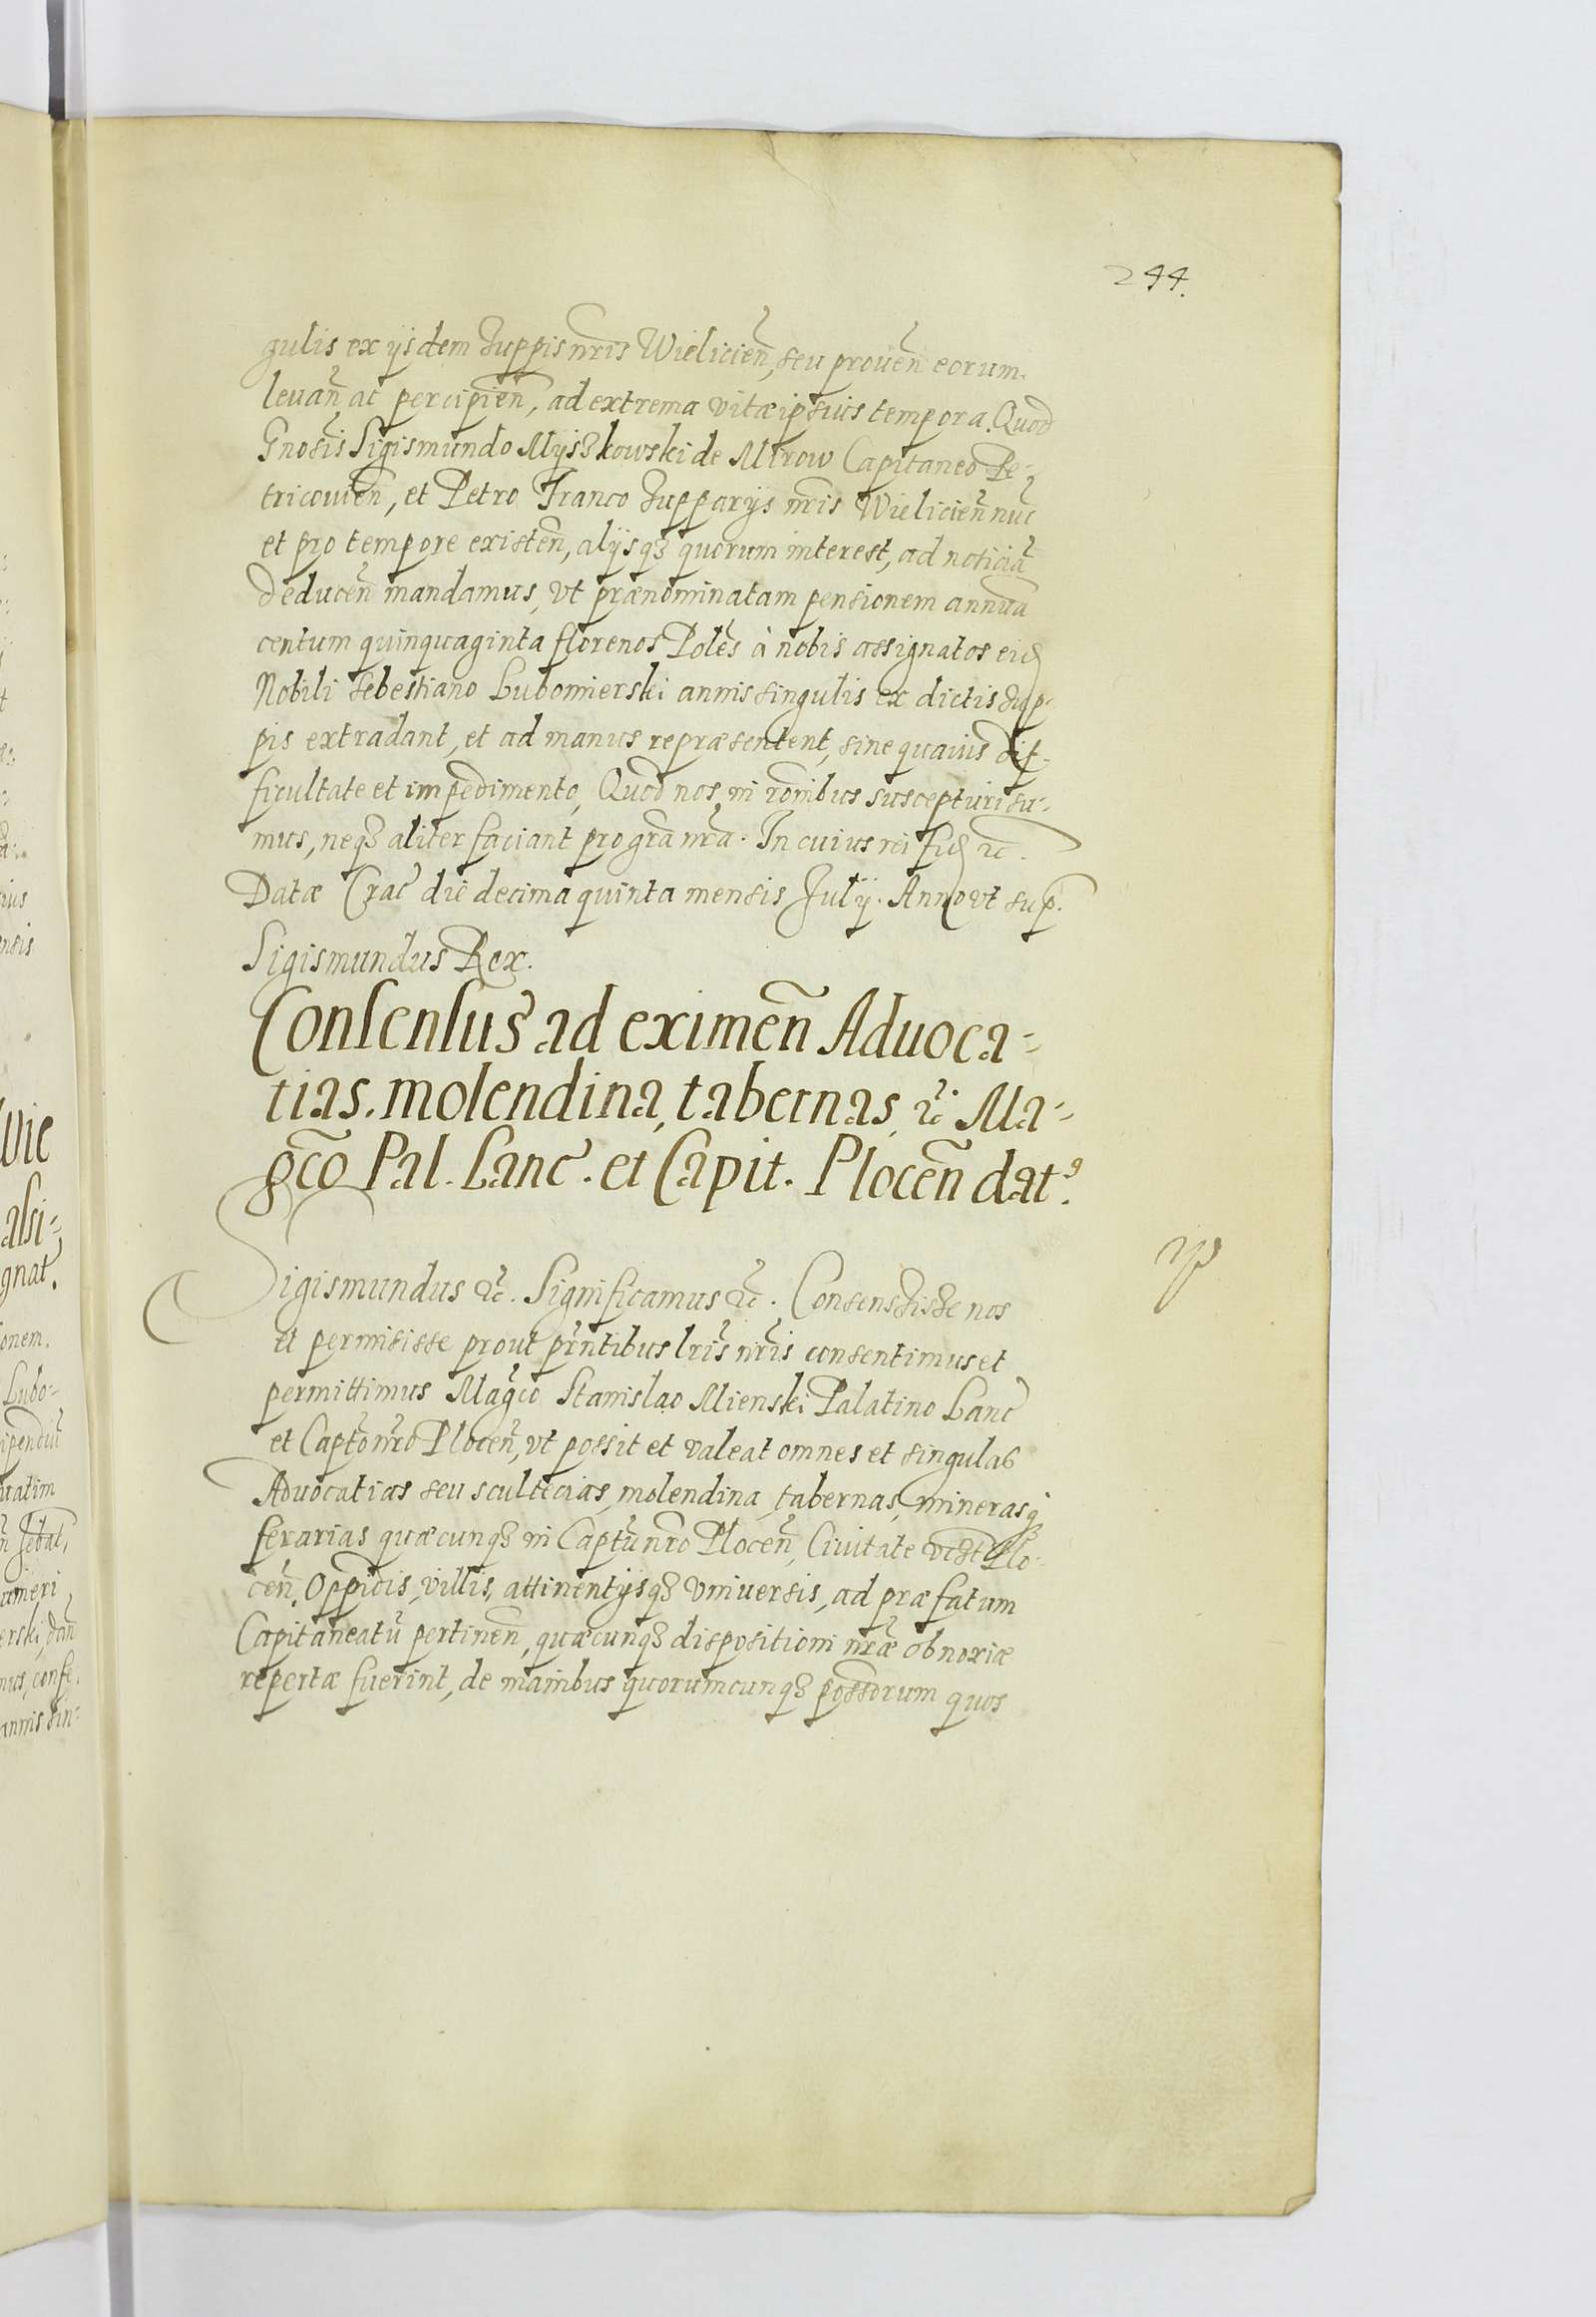 244.
gulis ex ijsdem Zuppis nr̃is Wielicieñ, seu proueñ eorum
leuañ ac percipieñ, ad extrema vitæ ipsius tempora. Quod
Gnosis Sigismundo Mijszkowski de Mirow Capitaneo Pe-
tricouieñ, et Petro Franco Zupparijs nr̃is Wielicieñ nuc̃
et pro tempore existeñ, alijsqȝ quorum interest, ad noticiã
deduceñ mandamus, vt prænominatam pensionem annuã
centum quinquaginta florenos Poles̃ à nobis assignatos eid
Nobili Sebestiano Lubomierski annis singulis ex dictis Zup-
pis extradant, et ad manus repræsentent, sine quauis dif-
ficultate et impedimento, Quod nos in rõnibus suscepturi su-
mus, neqȝ aliter faciant pro grã nr̃a. In cuius rei fid ꝛc̃.
Datæ Crac̃ die decima quinta mensis Julij. Anno vt sup̃.
Sigismundus Rex.
Consensus ad eximeñ Aduoca-
tias, molendina, tabernas, ꝛc̃. Ma-
gc̃o Pal. Lanc̃. et Capit. Ploceñ datꝰ.
Sigismundus ꝛc̃. Significamus ꝛc̃. Consensisse nos
et permisisse prout pr̃ntibus lr̃is nr̃is consentimus et
permittimus Mag̃co Stanislao Mienski Palatino Lanc̃
et Captõ nr̃o Ploceñ, vt possit et valeat omnes et singulas
Aduocatias seu scultecias, molendina, tabernas, minerasqȝ
ferarias quæcunqȝ in Captũ nr̃o Ploceñ, Ciuitate Plo-
ceñ, Oppidis, villis, attinentijsqȝ vniuersis, ad præfatum
Capitaneatũ pertineñ, quæcunqȝ dispositioni nr̃æ obnoxiæ
repertæ fuerint, de manibus quorumcunqȝ poss̃orum quos